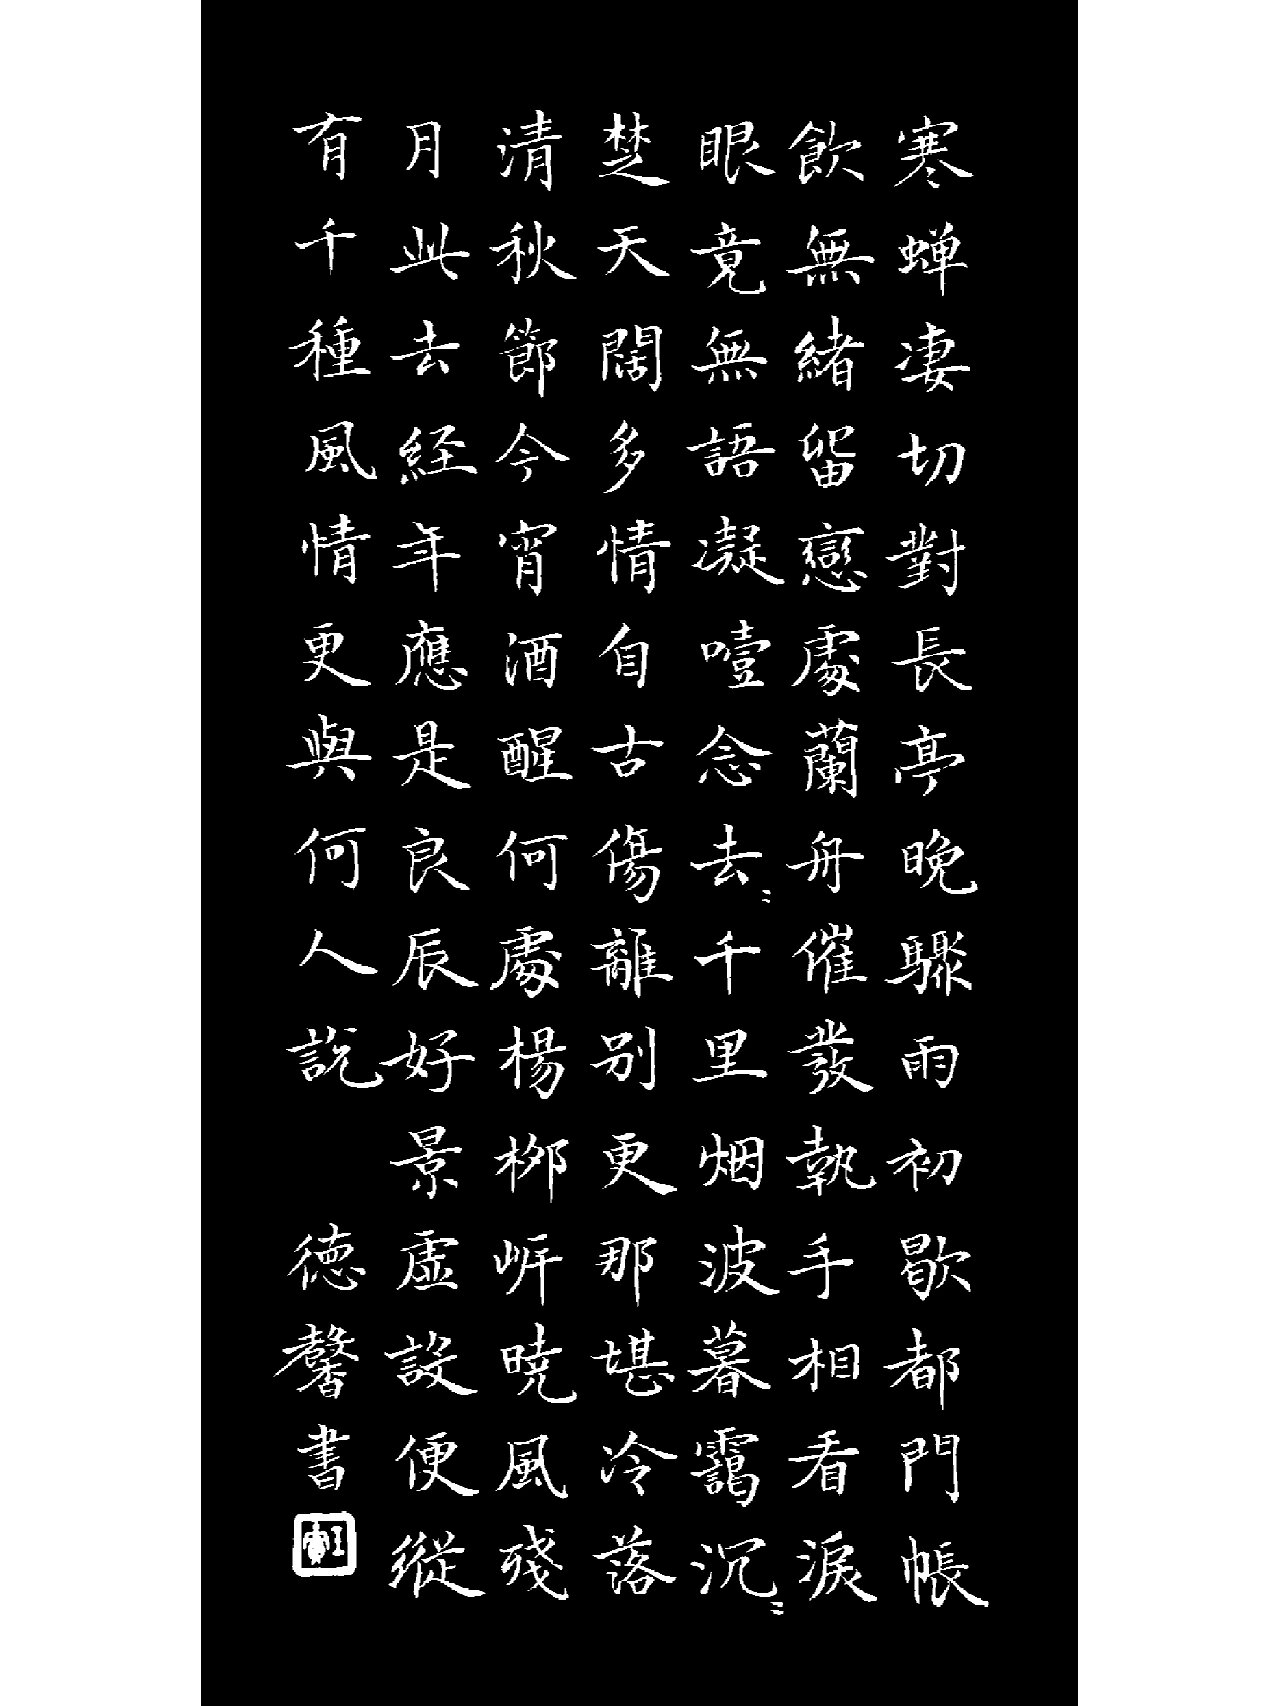 寒蝉凄切對長亭晚驟雨初歇都門帳
飲無緒留戀處蘭舟催發執手相看淚
眼竟無語凝噎念去〻千里烟波暮靄沉〻
楚天闊多情自古傷離别更那堪冷落
清秋節今宵酒醒何處楊栁岍曉風殘
月此去経年應是良辰好景虚設便縱
有千種風情更與何人説
德馨書